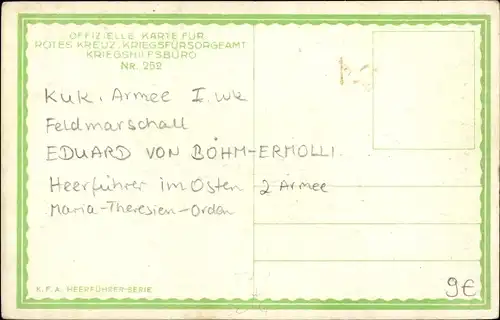 OFFIZIELLE KARTE FÜR
ROTES KREUZ, KRIEGSFÜRSORGEAMT
KRIEGSHILFSBÜRO
NR. 252
KuK. Armee I. WK
Feldmarschall
EDUARD VON BÖHM-ERMOLLI.
Heerführer im Osten 2 Armee
Maria-Theresien-Orden
K.F.A. HEERFÜHRER-SERIE
9€